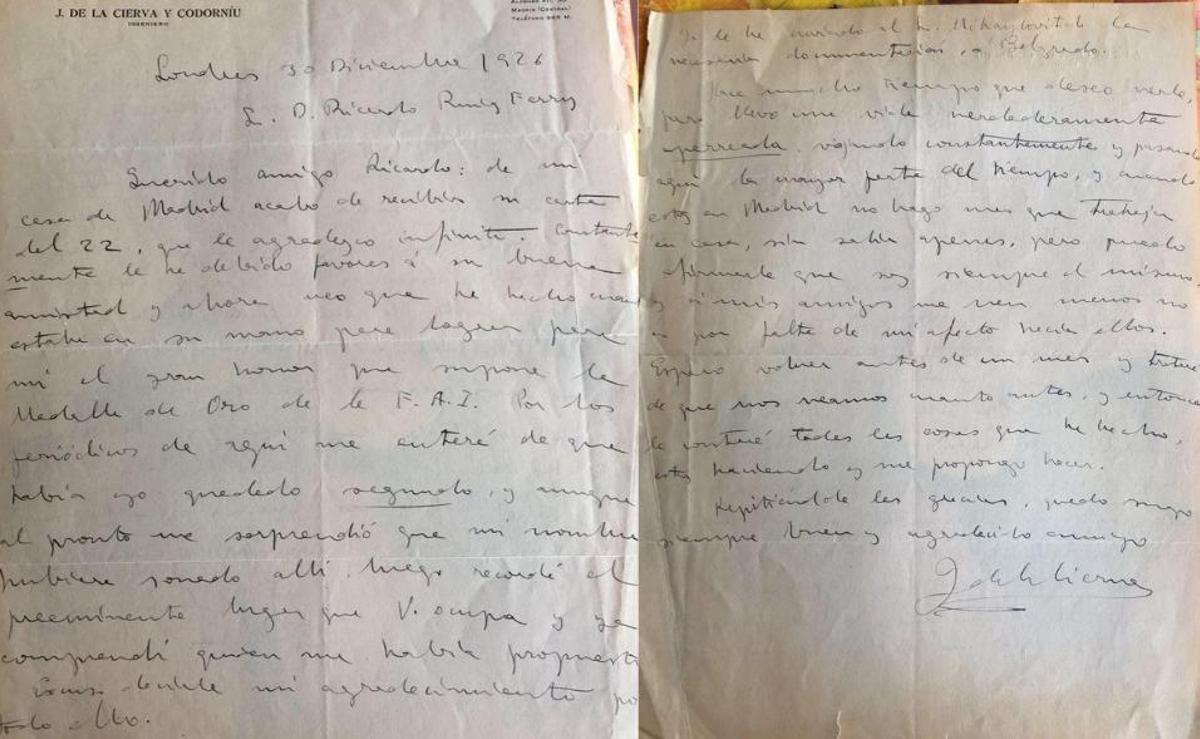 J. DE LA CIERVA Y CODORNÍU
INGENIERO
ALFONSO XII,
MADRID (CENTRAL)
TELÉFONO 929 M.
Londres 30 Diciembre 1926
S. D. Ricardo Ruiz Ferry
Querido amigo Ricardo: de mi
casa de Madrid acabo de recibir su carta
del 22, que le agradezco infinito. Constante
mente le he debido favores á su buena
amistad y ahora veo que ha hecho cuanto
estaba en su mano para lograr para
mí el gran honor que supone la
Medalla de Oro de la F.A.I. Por los
periódicos de aquí me enteré de que
había yo quedado segundo, y aunque
al pronto me sorprendió que mi nombre
hubiera sonado allí, luego recordé el
preeminente lugar que V. ocupa y ya
comprendí quien me había propuesto
Excuso decirle mi agradecimiento por
todo ello.
Ya le he enviado al Sr. Mihaylovitch la
necesaria documentación, a Belgrado.
Hace mucho tiempo que deseo verle,
pero llevo una vida verdaderamente
aperreada, viajando constantemente y pasando
aquí la mayor parte del tiempo, y cuando
estoy en Madrid no hago mas que trabajar
en casa, sin salir apenas, pero puedo
afirmarle que soy siempre el mismo
y si mis amigos me ven menos no
es por falta de mi afecto hacia ellos.
Espero volver antes de un mes y trataré
de que nos veamos cuanto antes, y entonces
le contaré todas las cosas que he hecho,
estoy haciendo y me propongo hacer.
Repitiéndole las gracias, quedo suyo
siempre buen y agradecido amigo
J. de la Cierva